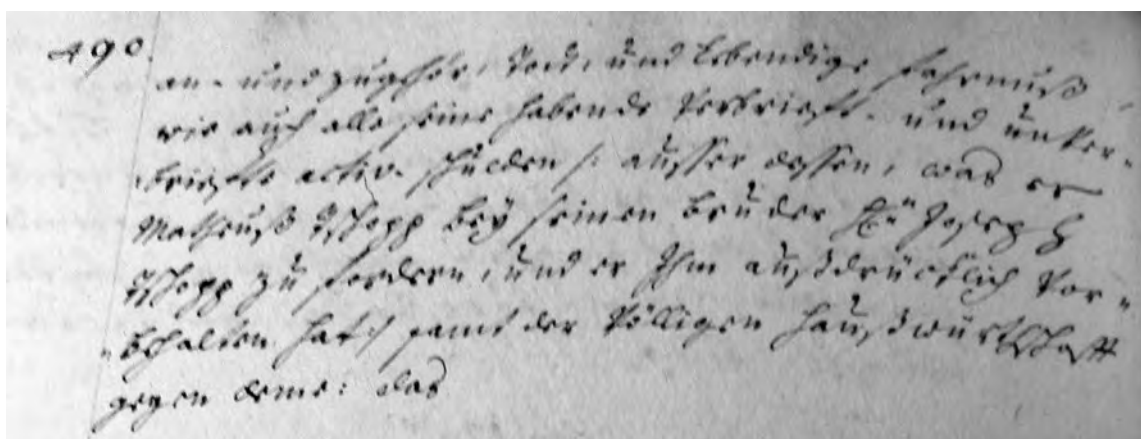 490.
an- und zugehör, Todt, und Lebendige Fahrnuß
wie auch alle seine habende Verbriefft- und unver-
brieffte activ-schulden /: ausser dessen, was er
Matheuß Tschopp bey seinen bruder H: Joseph
Tschopp zu fordern, und er Ihm außdrücklich vor-
behalten hat :/ samt der Völligen Haußwürthschafft
gegen deme: das